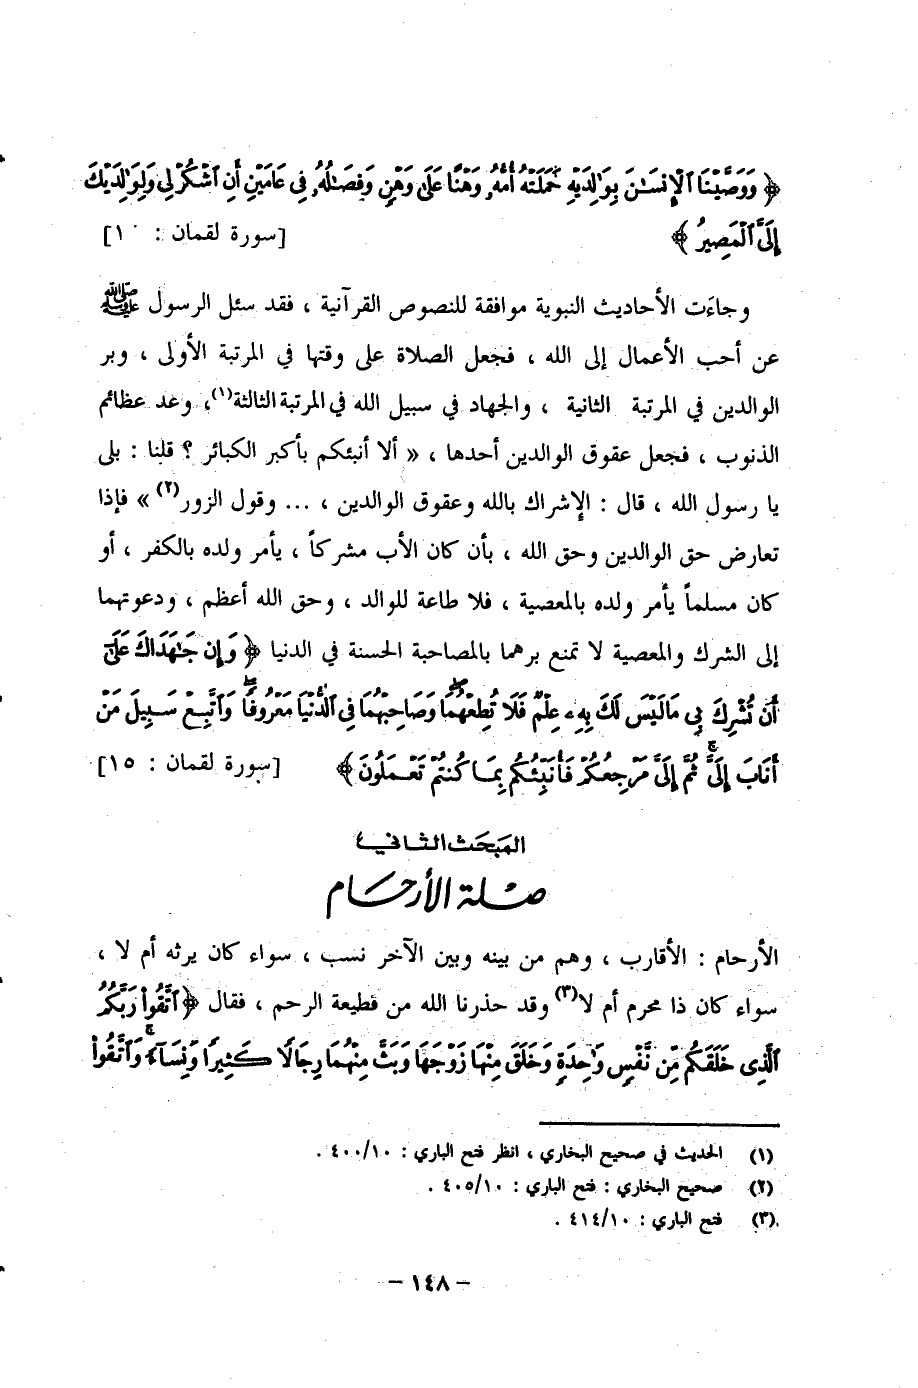 ﴿ وَوَصَّيْنَا ٱلْإِنسَٰنَ بِوَٰلِدَيْهِ حَمَلَتْهُ أُمُّهُۥ وَهْنًا عَلَىٰ وَهْنٍ وَفِصَٰلُهُۥ فِى عَامَيْنِ أَنِ ٱشْكُرْ لِى وَلِوَٰلِدَيْكَ
إِلَىَّ ٱلْمَصِيرُ ﴾ [سورة لقمان : ١٠]
وجاءَت الأحاديث النبوية موافقة للنصوص القرآنية ، فقد سئل الرسول ﷺ
عن أحب الأعمال إلى الله ، فجعل الصلاة على وقتها في المرتبة الأولى ، وبر
الوالدين في المرتبة الثانية ، والجهاد في سبيل الله في المرتبة الثالثة(١)، وعد عظائم
الذنوب ، فجعل عقوق الوالدين أحدها ، « ألا أنبئكم بأكبر الكبائر ؟ قلنا : بلى
يا رسول الله ، قال : الإشراك بالله وعقوق الوالدين ، ... وقول الزور(٢) » فإذا
تعارض حق الوالدين وحق الله ، بأن كان الأب مشركاً ، يأمر ولده بالكفر ، أو
كان مسلماً يأمر ولده بالمعصية ، فلا طاعة للوالد ، وحق الله أعظم ، ودعوتهما
إلى الشرك والمعصية لا تمنع برهما بالمصاحبة الحسنة في الدنيا ﴿ وَإِن جَٰهَدَاكَ عَلَىٰٓ
أَن تُشْرِكَ بِى مَا لَيْسَ لَكَ بِهِۦ عِلْمٌ فَلَا تُطِعْهُمَا ۖ وَصَاحِبْهُمَا فِى ٱلدُّنْيَا مَعْرُوفًا ۖ وَٱتَّبِعْ سَبِيلَ مَنْ
أَنَابَ إِلَىَّ ۚ ثُمَّ إِلَىَّ مَرْجِعُكُمْ فَأُنَبِّئُكُم بِمَا كُنتُمْ تَعْمَلُونَ ﴾ [سورة لقمان : ١٥]
المبحث الثاني
صلة الأرحام
الأرحام : الأقارب ، وهم من بينه وبين الآخر نسب ، سواء كان يرثه أم لا ،
سواء كان ذا محرم أم لا(٣) وقد حذرنا الله من قطيعة الرحم ، فقال ﴿ ٱتَّقُوا۟ رَبَّكُمُ
ٱلَّذِى خَلَقَكُم مِّن نَّفْسٍ وَٰحِدَةٍ وَخَلَقَ مِنْهَا زَوْجَهَا وَبَثَّ مِنْهُمَا رِجَالًا كَثِيرًا وَنِسَآءً ۚ وَٱتَّقُوا۟
(١) الحديث في صحيح البخاري ، انظر فتح الباري : ٤٠٠/١٠ .
(٢) صحيح البخاري : فتح الباري : ٤٠٥/١٠ .
(٣) فتح الباري : ٤١٤/١٠ .
– ١٤٨ –